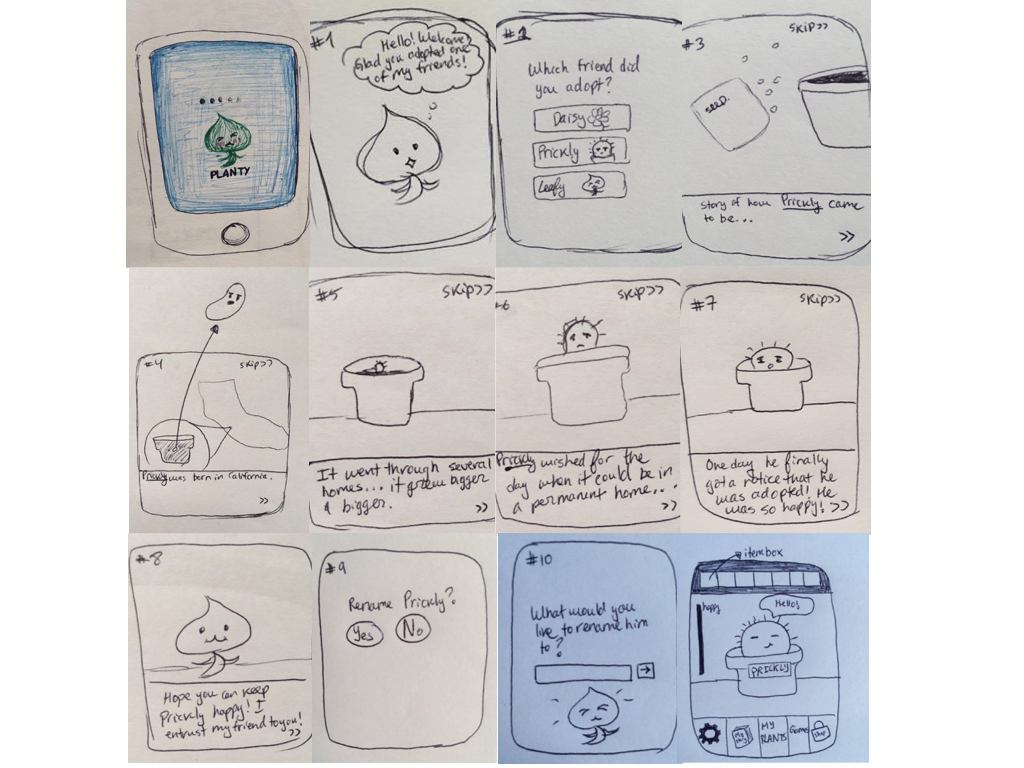 PLANTY
#1
Hello! Welcome
Glad you adopted one
of my friends!
#2
Which friend did
you adopt?
Daisy
Prickly
Leafy
#3
SKIP>>
seed.
Story of how Prickly came
to be...
>>
#4
SKIP>>
Prickly was born in California.
>>
#5
SKIP>>
It went through several
homes... it grew bigger
& bigger.
>>
6
SKIP>>
Prickly wished for the
day when it could be in
a permanent home...
>>
#7
SKIP>>
One day he finally
got a notice that he
was adopted! He
was so happy! >>
#8
Hope you can keep
Prickly happy! I
entrust my friend to you!
>>
#9
Rename Prickly?
Yes
No
#10
What would you
like to rename him
to?
item box
happy
Hello!
PRICKLY
MY
PLANTS
Game
Shop